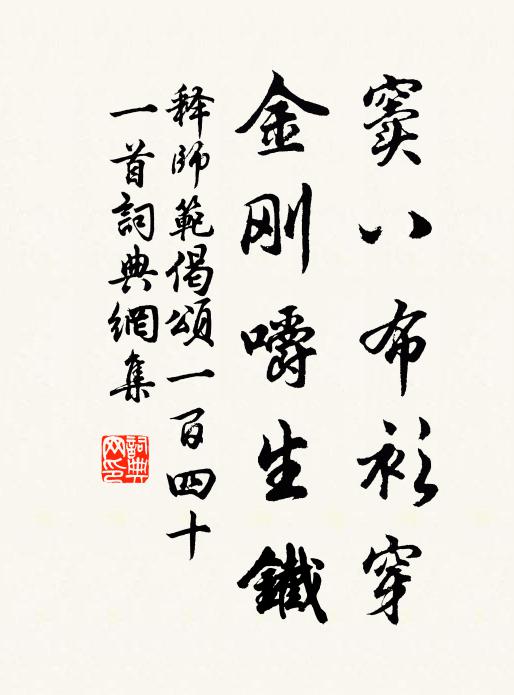 窦八布衫穿
金刚嚼生鐵
释師範偈頌一百四十
一首詞典網集
詞典网印